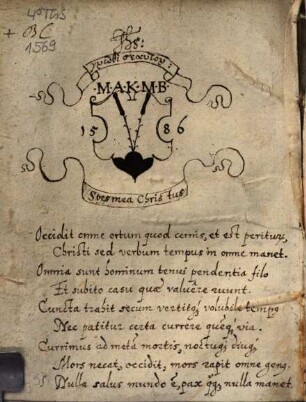 4° Ths
+ BC
1569
γνωθι σεαυτον:
·M·A·K·M·B·
15 86
Spes mea Christus
Occidit omne ortum quod cernis, et est periturū,
Christi sed verbum tempus in omne manet.
Omnia sunt hominum tenui pendentia filo
Et subito casu quæ valuere ruunt.
Cuncta trahit secum vertitq; volubile tempꝰ
Nec patitur certa currere quęq; via.
Currimus ad metā mortis, noctuq; diuq;
Mors necat, occidit, mors rapit omne genꝰ.
Nulla salus mundo ē, pax nulla manet.